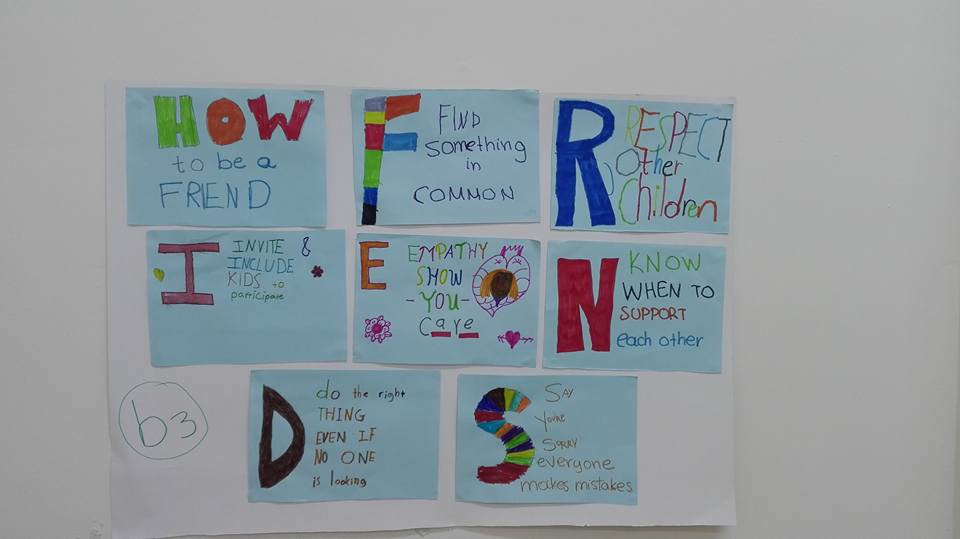 HOW
to be a
FRIEND
F
FIND
something
in
COMMON
R
RESPECT
Other
Children
I
INVITE &
INCLUDE
KIDS to
participate
E
EMPATHY
SHOW
-YOU-
Care
N
KNOW
WHEN TO
SUPPORT
each other
D
do the right
THING
EVEN IF
NO ONE
is looking
S
SAY
You're
SORRY
everyone
makes mistakes
b3